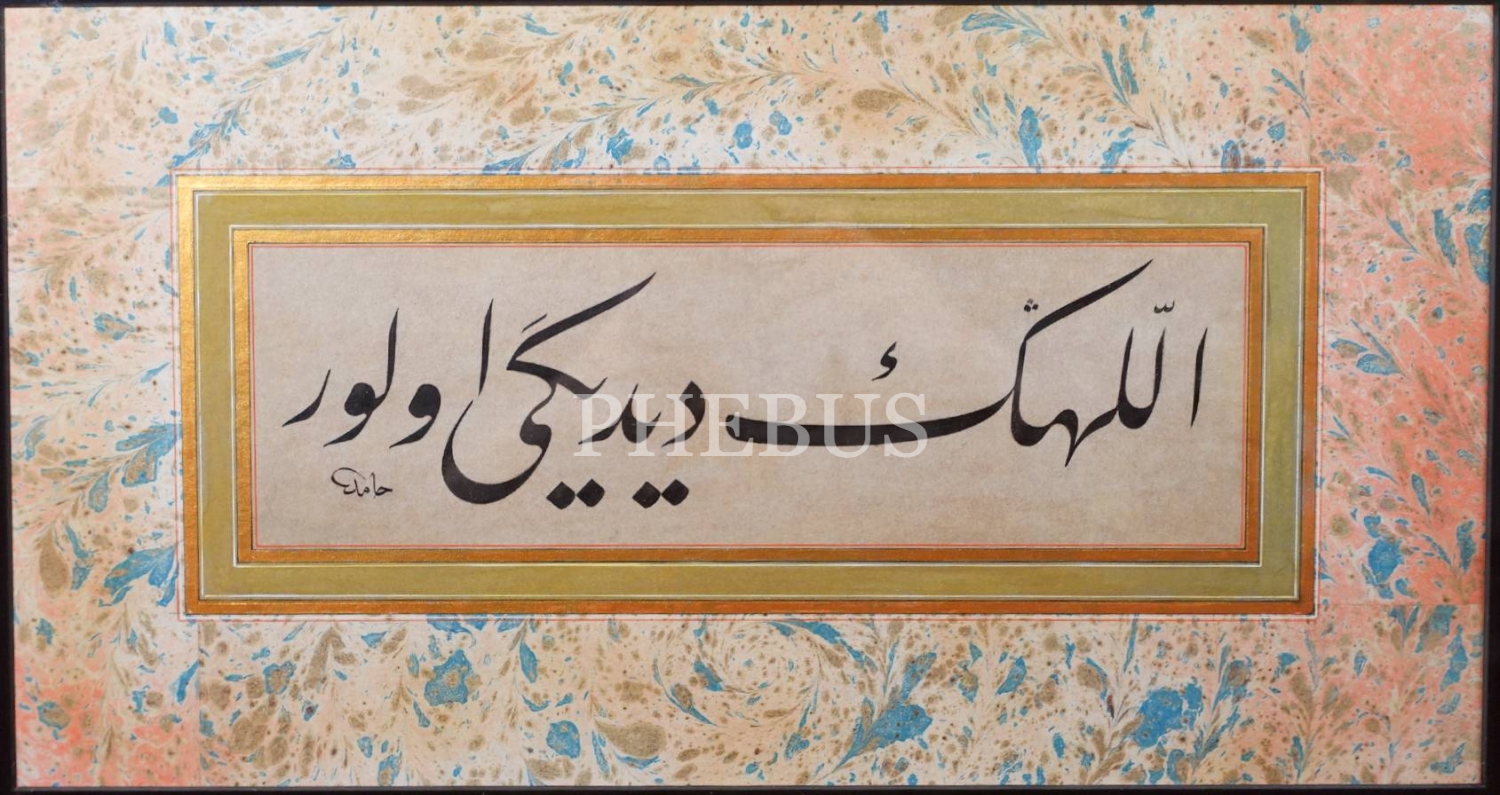 اللّهڭ ديديكي اولور
حامد
PHEBUS